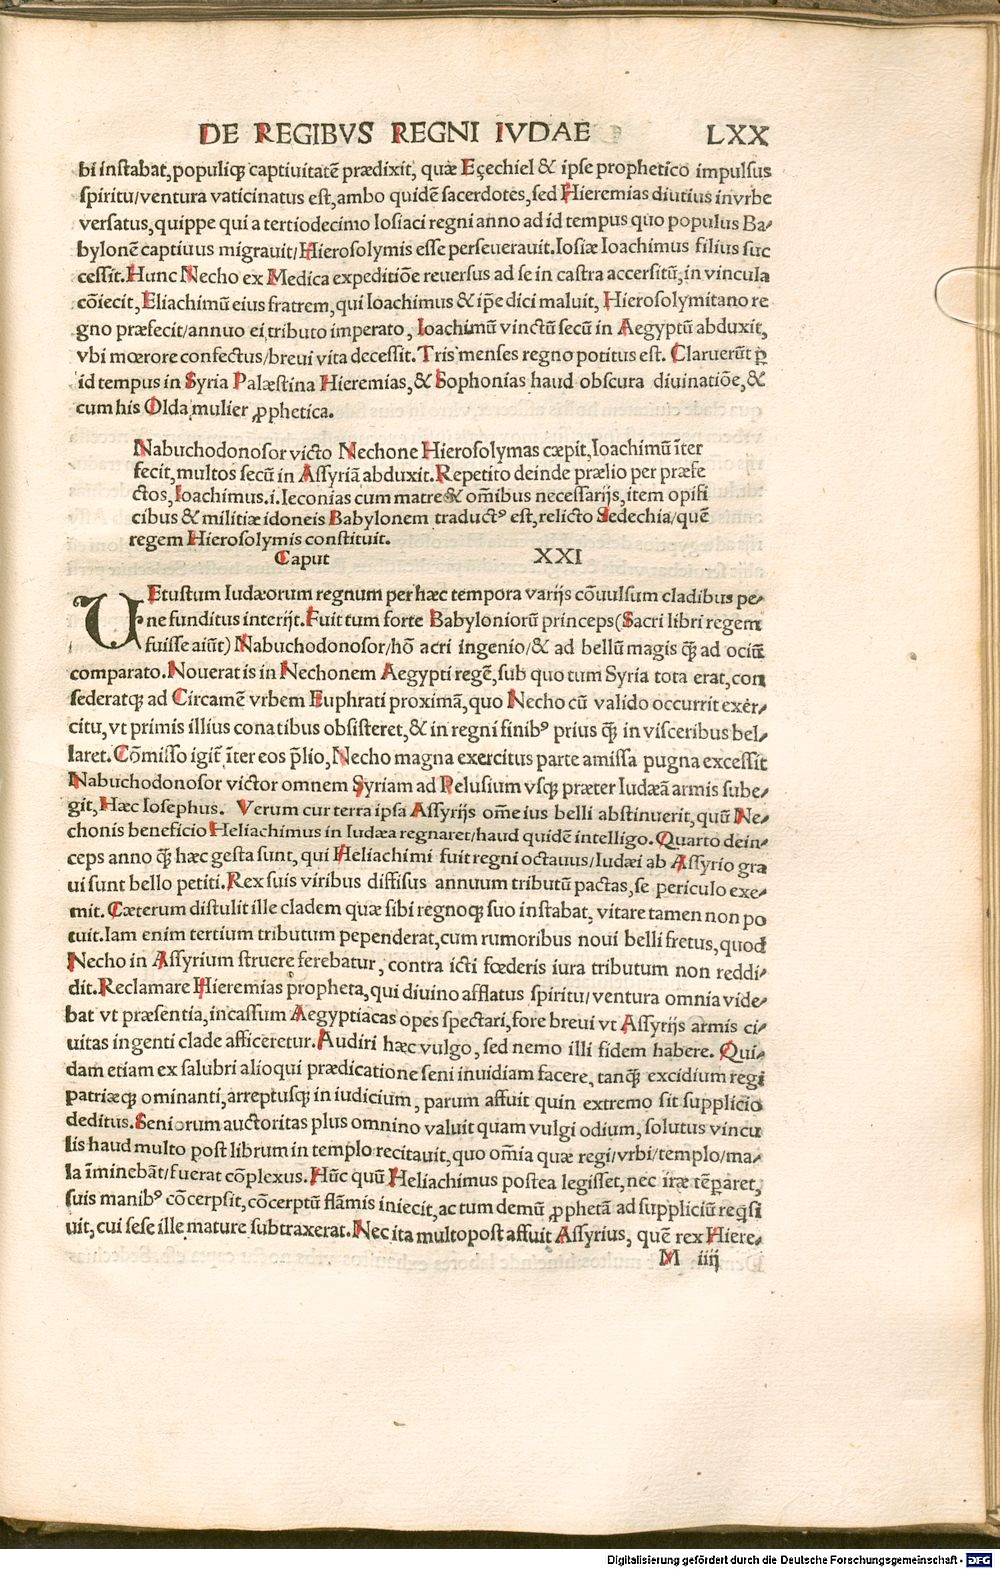 DE REGIBVS REGNI IVDAE LXX
bi instabat, populiq; captiuitatē prædixit, quæ Eçechiel & ipse prophetico impulsus
spiritu/ventura vaticinatus est, ambo quidē sacerdotes, sed Hieremias diutius invrbe
versatus, quippe qui a tertiodecimo Iosiaci regni anno ad id tempus quo populus Ba-
bylonē captiuus migrauit/Hierosolymis esse perseuerauit. Iosiæ Ioachimus filius suc
cessit. Hunc Necho ex Medica expeditiōe reuersus ad se in castra accersitū, in vincula
cōiecit, Eliachimū eius fratrem, qui Ioachimus & ip̄e dici maluit, Hierosolymitano re
gno præfecit/annuo ei tributo imperato, Ioachimū vinctū secū in Aegyptū abduxit,
vbi mœrore confectus/breui vita decessit. Tris menses regno potitus est. Claruerūt ꝑ
id tempus in Syria Palæstina Hieremias, & Sophonias haud obscura diuinatiōe, &
cum his Olda mulier ꝓphetica.
Nabuchodonosor victo Nechone Hierosolymas cæpit, Ioachimū īter
fecit, multos secū in Assyriā abduxit. Repetito deinde prælio per præfe
ctos, Ioachimus .i. Ieconias cum matre & om̄ibus necessarijs, item opifi
cibus & militiæ idoneis Babylonem traductꝰ est, relicto Sedechia/quē
regem Hierosolymis constituit.
Caput XXI
VEtustum Iudæorum regnum per hæc tempora varijs cōuulsum cladibus pe-
ne funditus interijt. Fuit tum forte Babyloniorū princeps (Sacri libri regem
fuisse aiūt) Nabuchodonosor/hō acri ingenio/& ad bellū magis q̄; ad ociū
comparato. Nouerat is in Nechonem Aegypti regē, sub quo tum Syria tota erat, con
sederatq; ad Circamē vrbem Euphrati proximā, quo Necho cū valido occurrit exer-
citu, vt primis illius conatibus obsisteret, & in regni finibꝰ prius q̄; in visceribus bel-
laret. Cōmisso igit̄ īter eos p̄lio, Necho magna exercitus parte amissa pugna excessit
Nabuchodonosor victor omnem Syriam ad Pelusium vsq; præter Iudæā armis sube-
git, Hæc Iosephus. Verum cur terra ipsa Assyrijs om̄e ius belli abstinuerit, quū Ne-
chonis beneficio Heliachimus in Iudæa regnaret/haud quidē intelligo. Quarto dein-
ceps anno q̄; hæc gesta sunt, qui Heliachimi fuit regni octauus/Iudæi ab Assyrio gra
ui sunt bello petiti. Rex suis viribus diffisus annuum tributū pactas, se periculo exe-
mit. Cæterum distulit ille cladem quæ sibi regnoq; suo instabat, vitare tamen non po
tuit. Iam enim tertium tributum pependerat, cum rumoribus noui belli fretus, quod
Necho in Assyrium struere ferebatur, contra icti fœderis iura tributum non reddi-
dit. Reclamare Hieremias propheta, qui diuino afflatus spiritu/ventura omnia vide-
bat vt præsentia, incassum Aegyptiacas opes spectari, fore breui vt Assyrijs armis ci-
uitas ingenti clade afficeretur. Audiri hæc vulgo, sed nemo illi fidem habere. Qui-
dam etiam ex salubri alioqui prædicatione seni inuidiam facere, tanq̄; excidium regi
patriæq; ominanti, arreptusq; in iudicium, parum affuit quin extremo sit supplicio
deditus. Seniorum auctoritas plus omnino valuit quam vulgi odium, solutus vincu
lis haud multo post librum in templo recitauit, quo om̄ia quæ regi/vrbi/templo/ma-
la īminebāt/fuerat cōplexus. Hūc quū Heliachimus postea legisset, nec iræ tēꝑaret,
suis manibꝰ cōcerpsit, cōcerptū flāmis iniecit, ac tum demū ꝓphetā ad suppliciū reqsi
uit, cui sese ille mature subtraxerat. Nec ita multo post affuit Assyrius, quē rex Hiere-
M iiij
Digitalisierung gefördert durch die Deutsche Forschungsgemeinschaft - DFG